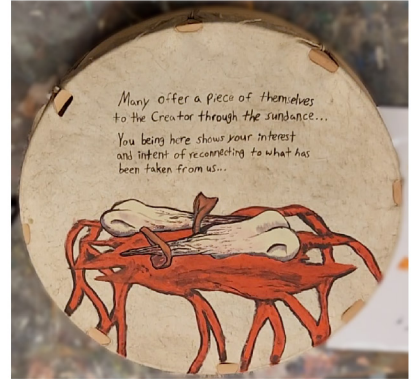 Many offer a piece of themselves
to the Creator through the sundance...
You being here shows your interest
and intent of reconnecting to what has
been taken from us...